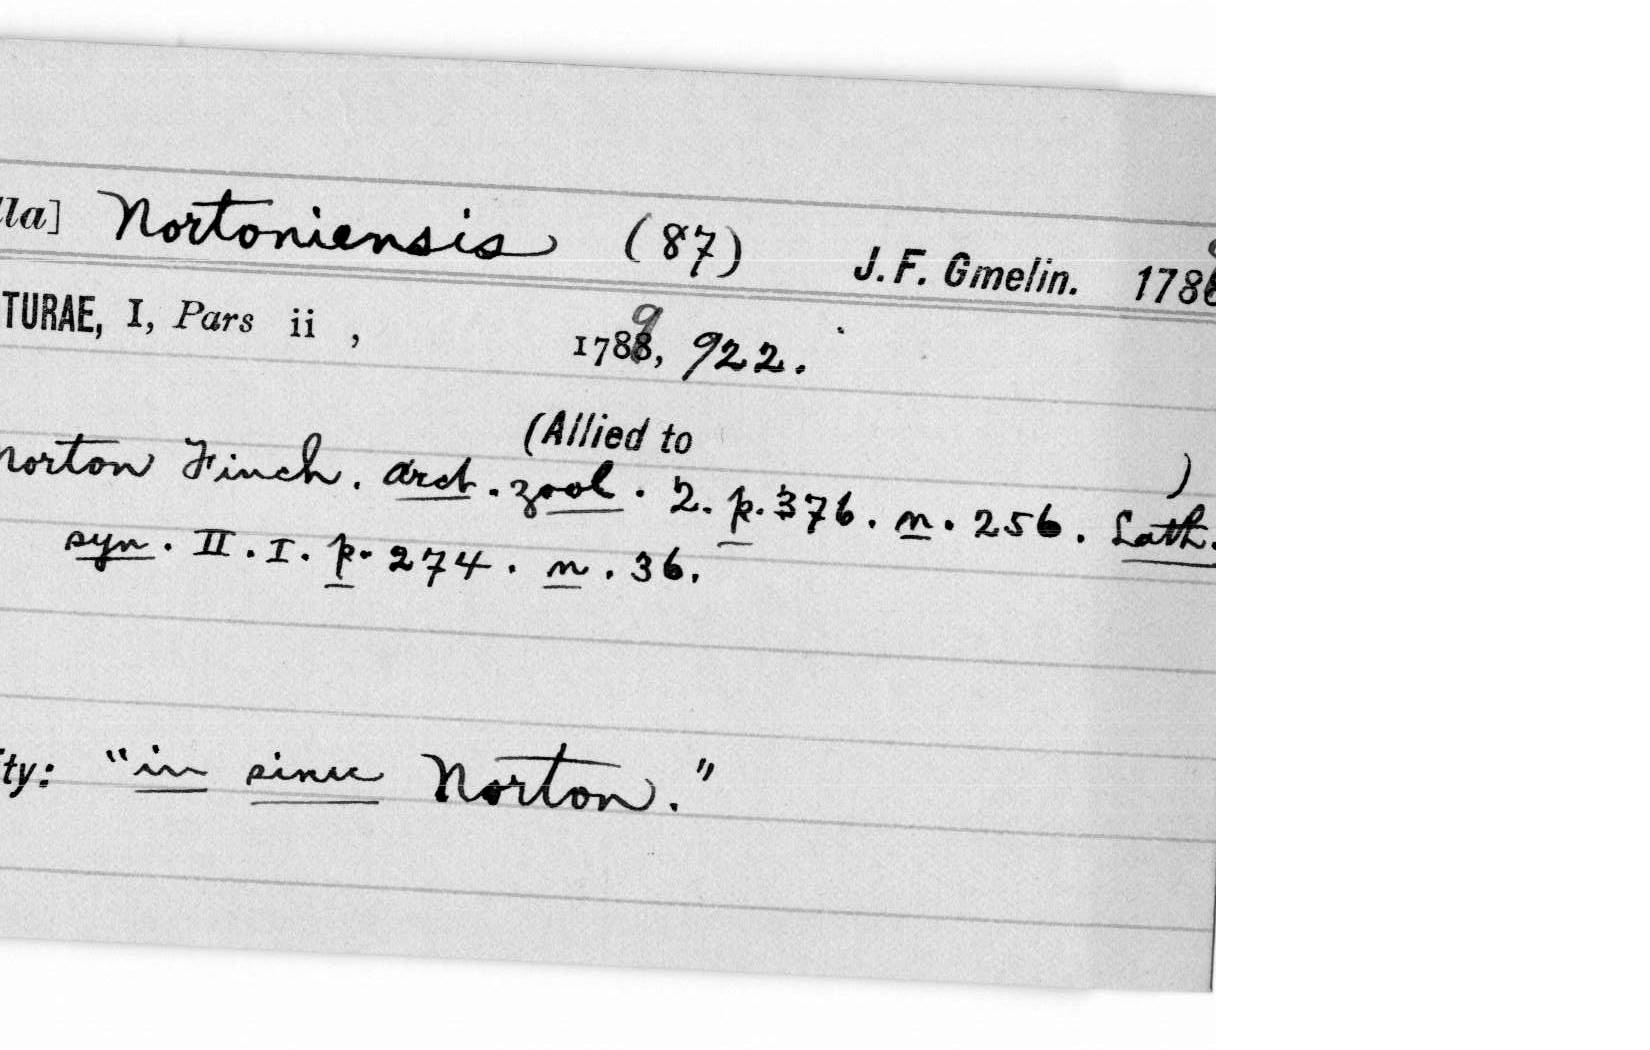 lla] Nortoniensis (87) J. F. Gmelin. 178
TURAE, I, Pars ii , 1789, 922.
(Allied to )
Norton Finch. arct. zool. 2. p. 376. n. 256. Lath.
syn. II. I. p. 274. n. 36.
ty: "in sinu Norton."